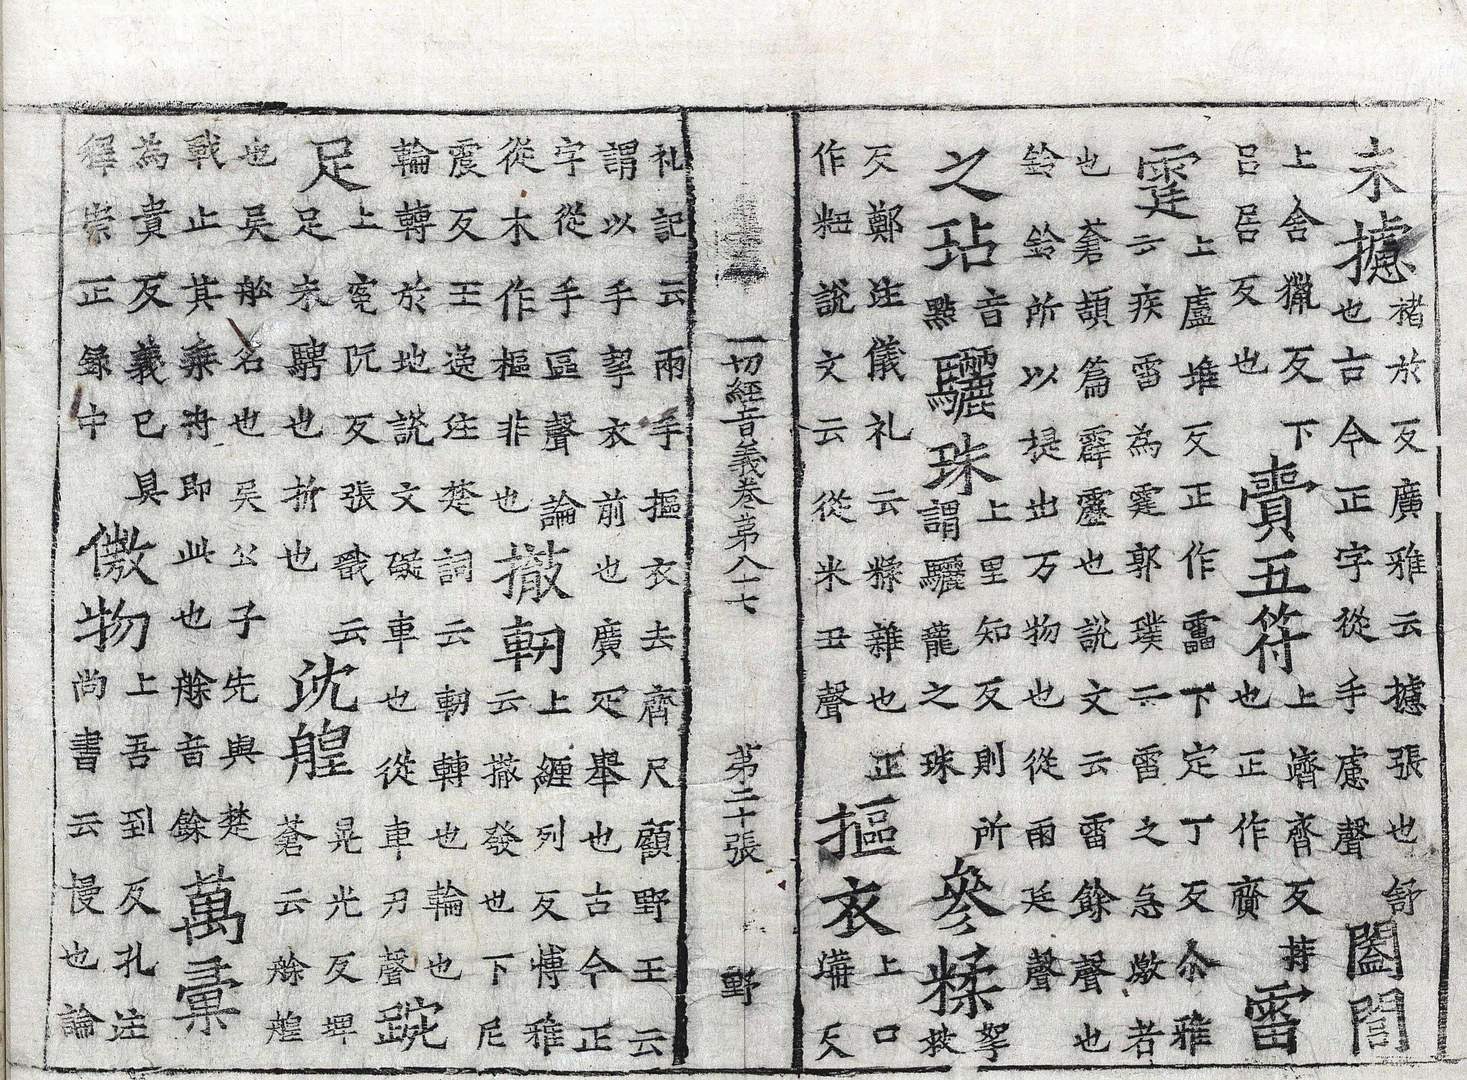 未攄褚於反廣雅云攄張也舒
也古今正字從手慮聲闔閭
上舍獵反下
呂居反也賷五符上濟齊反持
也正作齎雷
霆上盧堆反正作靁下定丁反尒雅
云疾雷為霆郭璞云雷之急激者
也蒼頡篇霹靂也說文云雷餘聲也
鈴鈴所以挺出万物也從雨廷聲
之玷音
點驪珠上里知反則所
謂驪龍之珠參糅拏
救
反鄭注儀礼云糅雜也正
作粈說文云從米丑聲摳衣上口
溝反
一切經音義卷第八十七 第二十張 野
礼記云兩手摳衣去齊尺顧野王云
謂以手挈衣前也廣疋舉也古今正
字從手區聲論
從木作樞非也撤軔上纏列反博雅
云撤發也下尼
震反王逸注楚詞云軔轉也輪也
輪轉於地說文礙車也從車刃聲踠
足上冤阮反張戩云
足未騁也折也沈艎晃光反埤
蒼云艅艎
也吳舩名也吳公子先與楚
戰止其乘舟即此也艅音餘萬彙
為貴反義已具
釋崇正錄中傲物上吾到反孔注
尚書云慢也論